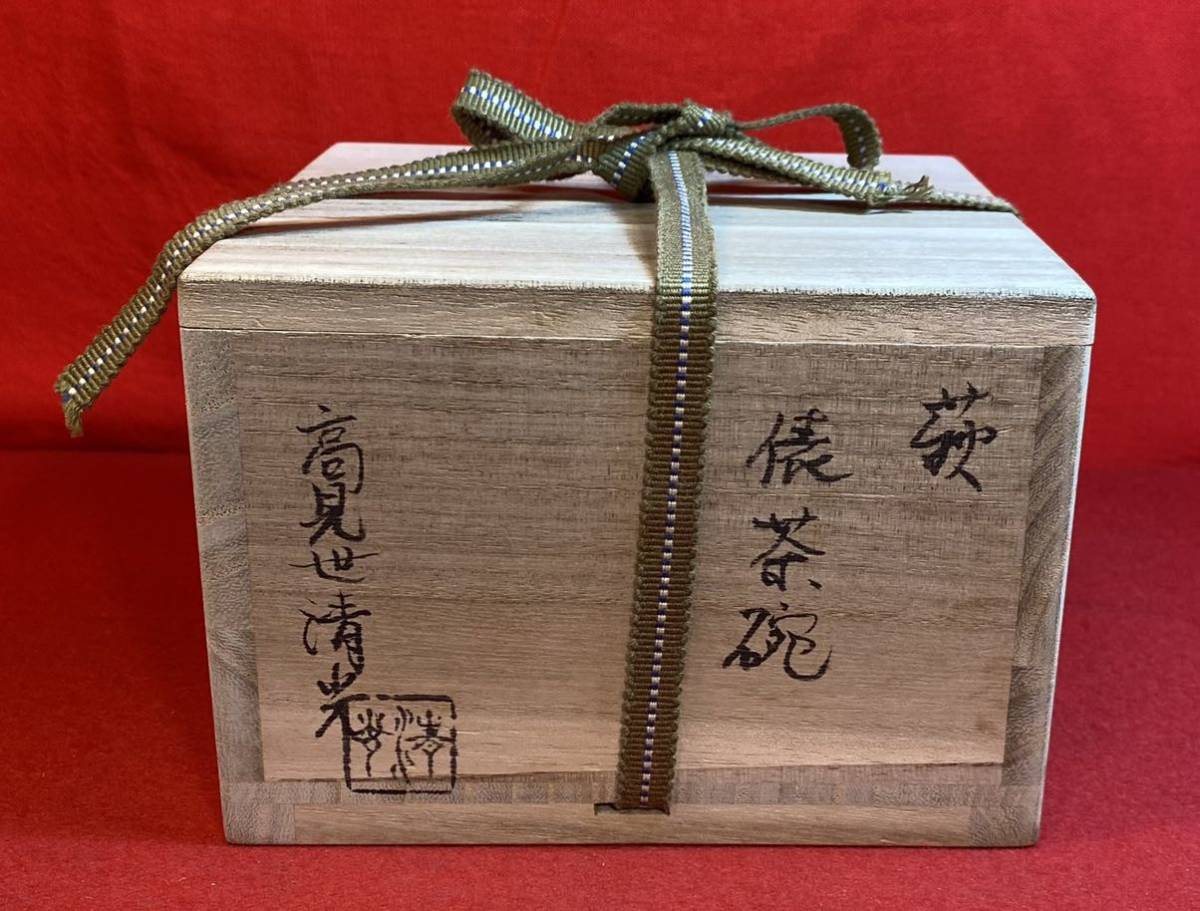 萩
俵茶碗
高見世清光